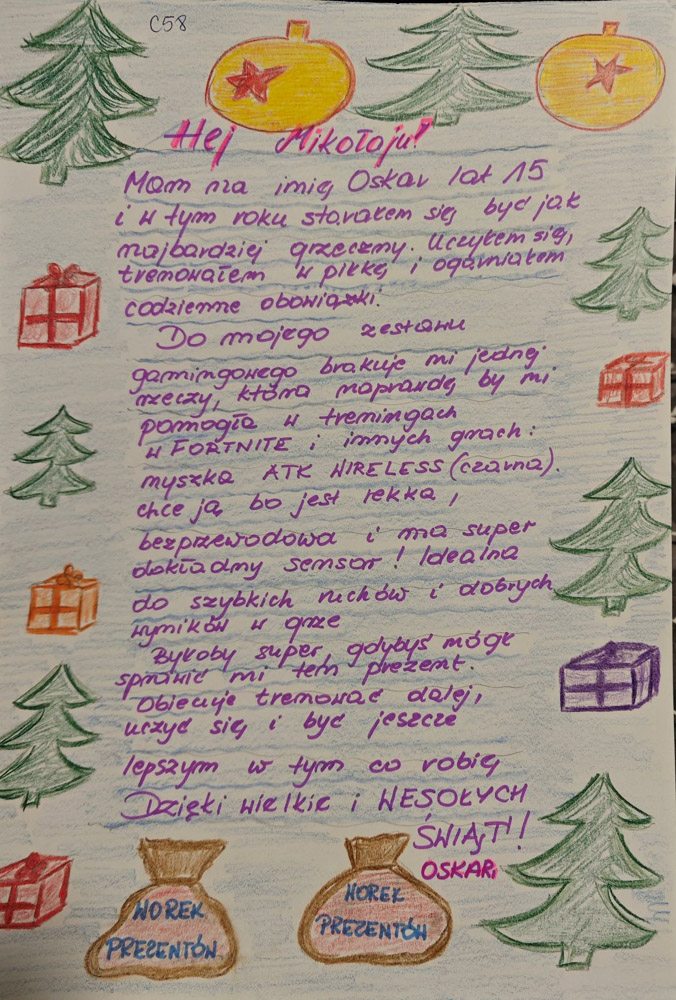 C58
Hej Mikołaju!
Mam na imię Oskar lat 15
i w tym roku starałem się być jak
najbardziej grzeczny. Uczyłem się,
trenowałem w piłkę i ogarniałem
codzienne obowiązki.
Do mojego zestawu
gamingowego brakuje mi jednej
rzeczy, która naprawdę by mi
pomogła w treningach
w FORTNITE i innych grach:
myszka ATK WIRELESS (czarna).
chce ją, bo jest lekka,
bezprzewodowa i ma super
dokładny sensor! Idealna
do szybkich ruchów i dobrych
wyników w grze
Byłoby super, gdybyś mógł
sprawić mi ten prezent.
Obiecuje trenować dalej,
uczyć się i być jeszcze
lepszym w tym co robię
Dzięki wielkie i WESOŁYCH
ŚWIĄT!
OSKAR
WOREK
PREZENTÓW
WOREK
PREZENTÓW